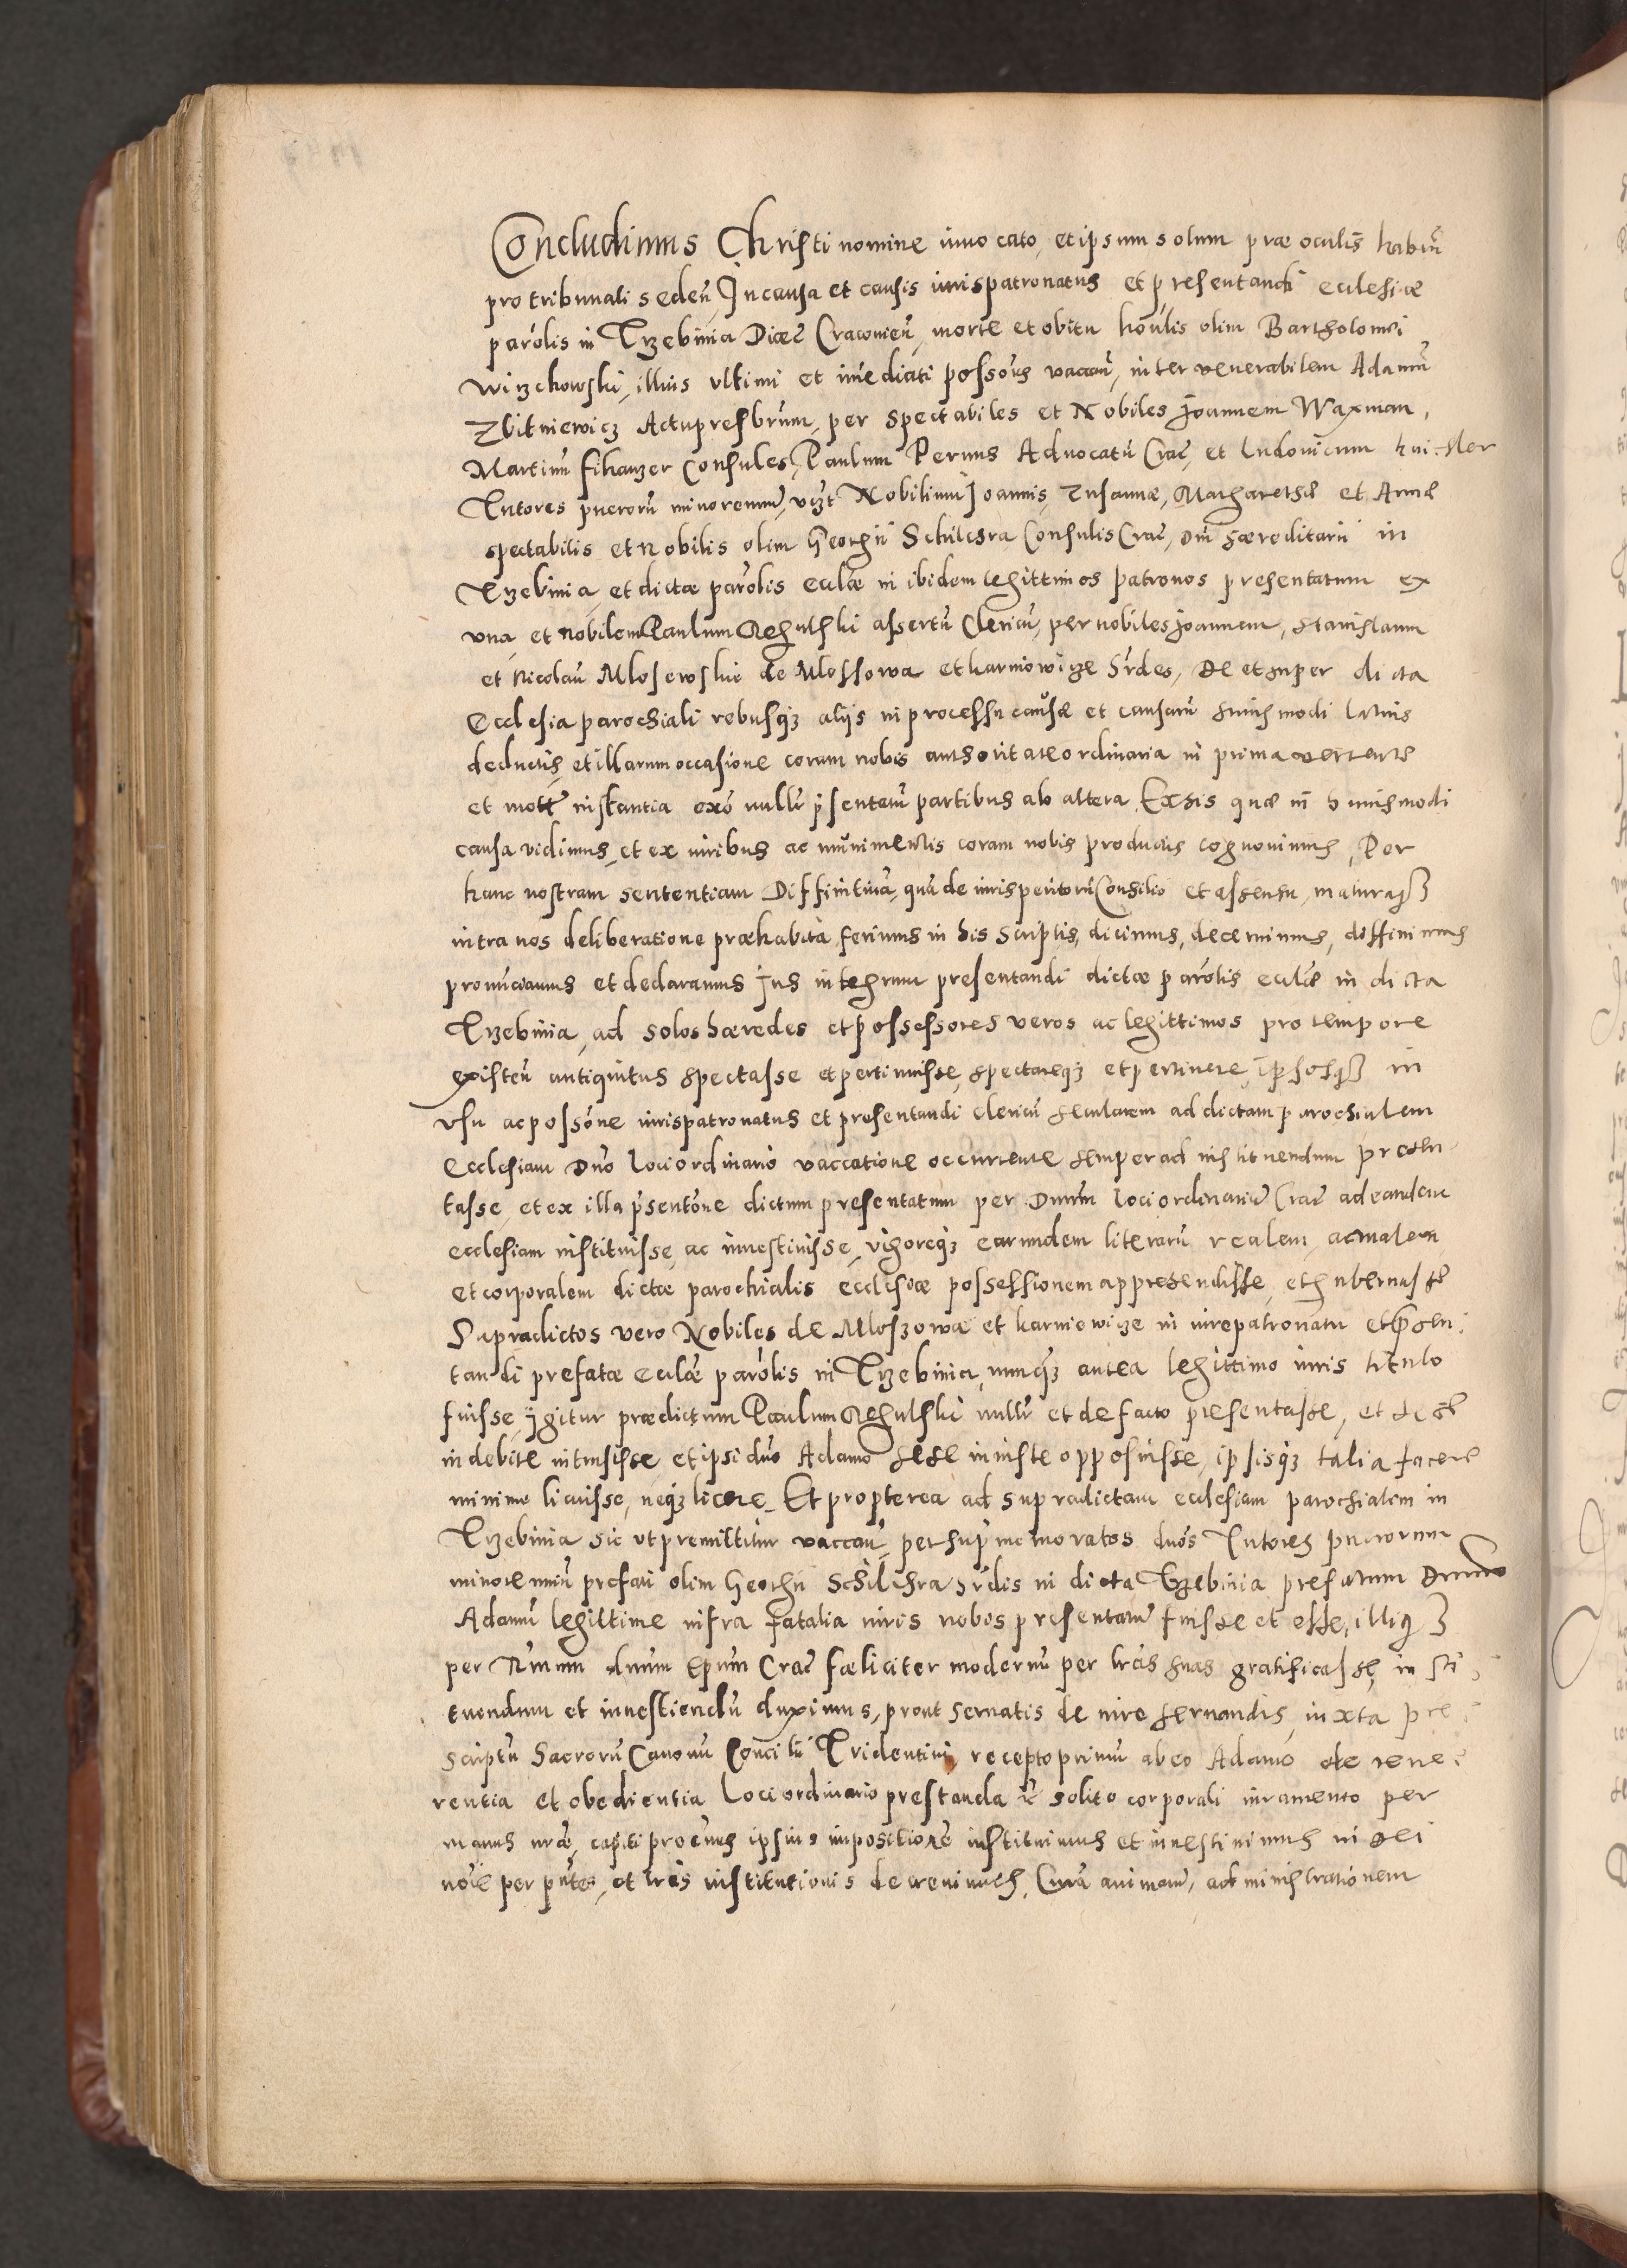 Concludimus Christi nomine invocato, et ipsum solum præ oculis habeñ
pro tribunali sedeñ, In causa et causis iurispatronatus et presentandi ecclesiæ
paroľis in Trzebinia Dioeč Cracovieñ, morte et obitu hoňlis olim Bartholomei
Wirzchowski, illius ultimi et imediati possoris vacañ, inter venerabilem Adamũ
Zbitniewicz Actupresbrum, per spectabiles et Nobiles Joannem Waxman,
Martinũ Consules, Paulum Pernus Advocatũ Crač, et Ludovicum
Tutores puerorũ minorennium, vizt Nobilium Joannis, Zusannæ, Margarethæ et Annæ
spectabilis et nobilis olim Georgii Schilhra Consulis Crač, Dñi hæreditarii in
Trzebinia, et dictæ paroľis ecclæ in ibidem legittimos patronos presentatum ex
vna, et nobilem Paulum Regulski assertũ Clericũ, per nobiles Joannem, Stanislaum
et Nicolaũ Mlosewskie de Mlossowa et karniowicze hrdes, De et super dicta
Ecclesia parochiali rebusqz aliis in processu causæ et causarũ huiusmodi latius
deductis, et illarum occasione coram nobis authoritate ordinaria in prima vertente
et instantia ex vno nullr psentatũ partibus ab altera. Ex his quæ in huiusmodi
causa vidimus, et ex iuribus ac munimentis coram nobis productis cognovimus, Per
hanc nostram sententiam Diffinitiuã, quã de iurisperitorũ Consilio et assensu, maturaqz
intra nos deliberatione præhabita ferimus in his scriptis, dicimus, decernimus, diffinimus
pronũciamus et declaramus Jus integrum presentandi dictæ paroľis ecclæ in dicta
Trzebinia, ad solos hæredes et possessores veros ac legittimos pro tempore
existeñ antiquitus spectasse et pertinuisse, spectareqz et pertinere, ipsosqz in
vsu ac possone iurispatronatus et presentandi clericũ secularem ad dictam parochialem
Ecclesiam Dno loci ordinario vaccatione occurrente semper ad instituendum presen
tasse, et ex illa psentone dictum presentatum per Dnum loci ordinariũ Crač ad eandem
ecclesiam instituisse, ac investivisse, vigoreqz earundem literarũ realem, actualem
et corporalem dictæ parochialis ecclesiæ possessionem apprehendisse, et gubernasse
Supradictos vero Nobiles de Mloszowa et karniowicze in iurepatronatu et presen
tandi prefatæ ecclæ paroľis in Trzebinia, nunqz antea legittimo iuris titulo
fuisse, igitur prædictum Paulum Regulski nullr et de facto presentasse, et
indebite intrusisse, et ipsi dno Adamo sese iniuste opposuisse, ipsisqz talia facere
minime licuisse, neqz licere. Et propterea ad supradictam ecclesiam parochialem in
Trzebinia sic vt premittitur vaccañ, per supmemoratos dnos Tutores puerorum
minorenniũ prefati olim Georgii Schilhra hrdis in dicta Trzebinia prefatum Dnum
Adamũ legittime infra fatalia iuris nobis presentatũ fuisse et esse, illiqz
per Rmum dnum Epum Crač fæliciter modernũ per lras suas gratificasse, insti
tuendum et investiendũ duximus, prout servatis de iure servandis, iuxta pre
scriptũ Sacrorũ Canonũ Concilii Tridentini, recepto primũ ab eo Adamo de reve
rentia et obedientia Loci ordinario prestanda solito corporali iuramento per
manus nræ, capiti ipsius impositione instituimus et investivimus in dei
noie per pntes, et lras institutionis decrevimus, Curã animarũ, administrationem